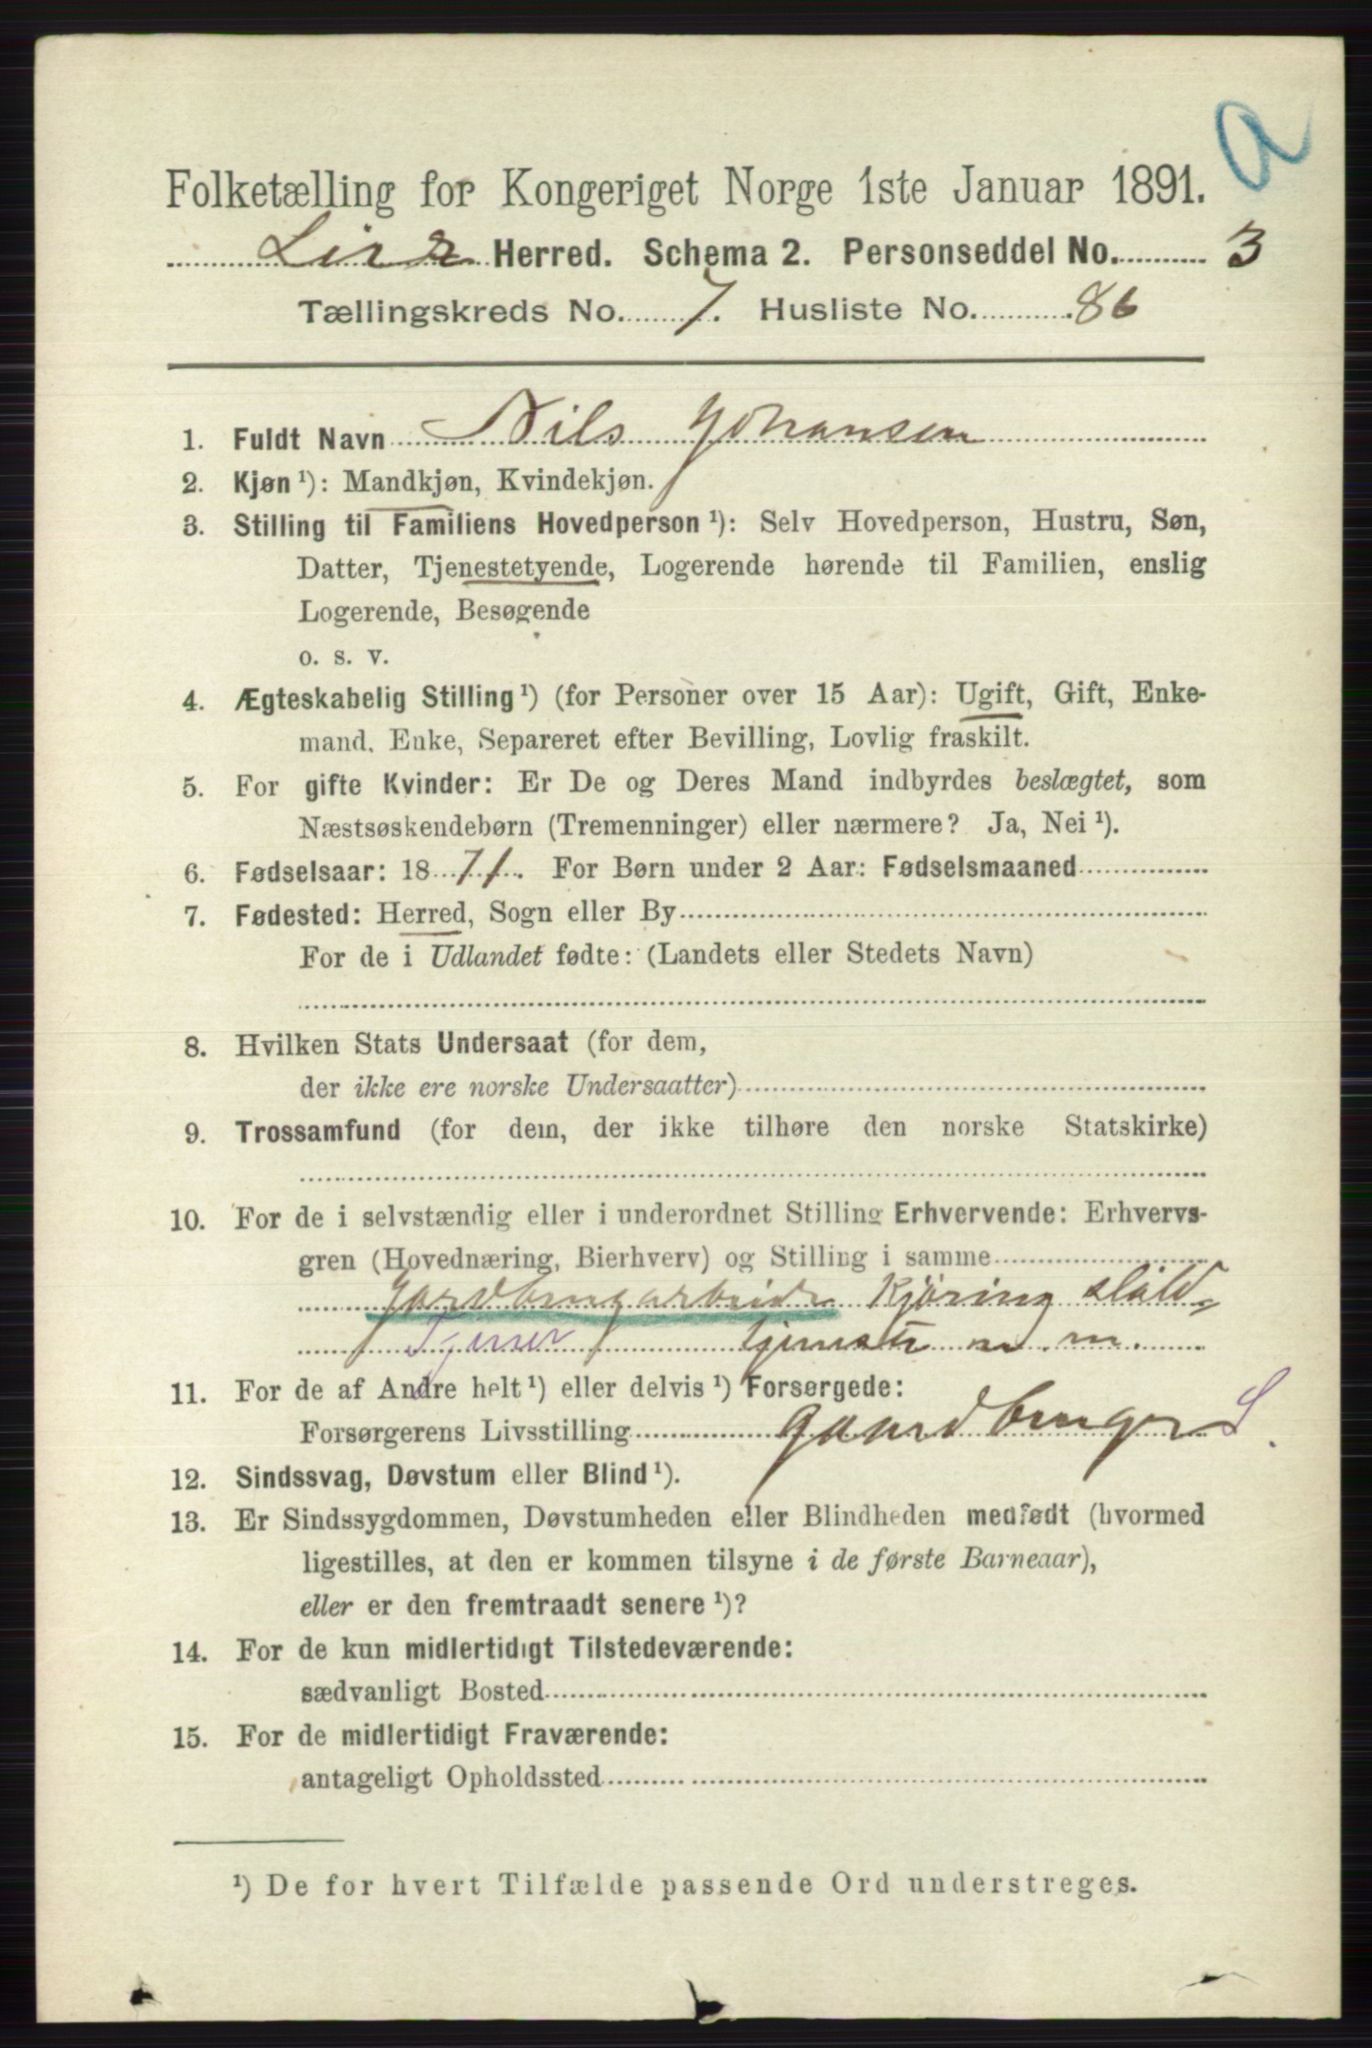 a
Folketælling for Kongeriget Norge 1ste Januar 1891.
Lier Herred. Schema 2. Personseddel No. 3
Tællingskreds No. 7. Husliste No. 86
1. Fuldt Navn Nils Johansen
2. Kjøn ¹): Mandkjøn, Kvindekjøn.
3. Stilling til Familiens Hovedperson ¹): Selv Hovedperson, Hustru, Søn,
Datter, Tjenestetyende, Logerende hørende til Familien, enslig
Logerende, Besøgende
o. s. v.
4. Ægteskabelig Stilling ¹) (for Personer over 15 Aar): Ugift, Gift, Enke-
mand, Enke, Separeret efter Bevilling, Lovlig fraskilt.
5. For gifte Kvinder: Er De og Deres Mand indbyrdes beslægtet, som
Næstsøskendebørn (Tremenninger) eller nærmere? Ja, Nei ¹).
6. Fødselsaar: 1871. For Børn under 2 Aar: Fødselsmaaned
7. Fødested: Herred, Sogn eller By
For de i Udlandet fødte: (Landets eller Stedets Navn)
8. Hvilken Stats Undersaat (for dem,
der ikke ere norske Undersaatter)
9. Trossamfund (for dem, der ikke tilhøre den norske Statskirke)
10. For de i selvstændig eller i underordnet Stilling Erhvervende: Erhvervs-
gren (Hovednæring, Bierhverv) og Stilling i samme
Jordbrugarbeide Kjøring
Tjener m. m.
11. For de af Andre helt ¹) eller delvis ¹) Forsørgede:
Forsørgerens Livsstilling Gaardbruger S.
12. Sindssvag, Døvstum eller Blind ¹).
13. Er Sindssygdommen, Døvstumheden eller Blindheden medfødt (hvormed
ligestilles, at den er kommen tilsyne i de første Barneaar),
eller er den fremtraadt senere ¹)?
14. For de kun midlertidigt Tilstedeværende:
sædvanligt Bosted
15. For de midlertidigt Fraværende:
antageligt Opholdssted
¹) De for hvert Tilfælde passende Ord understreges.